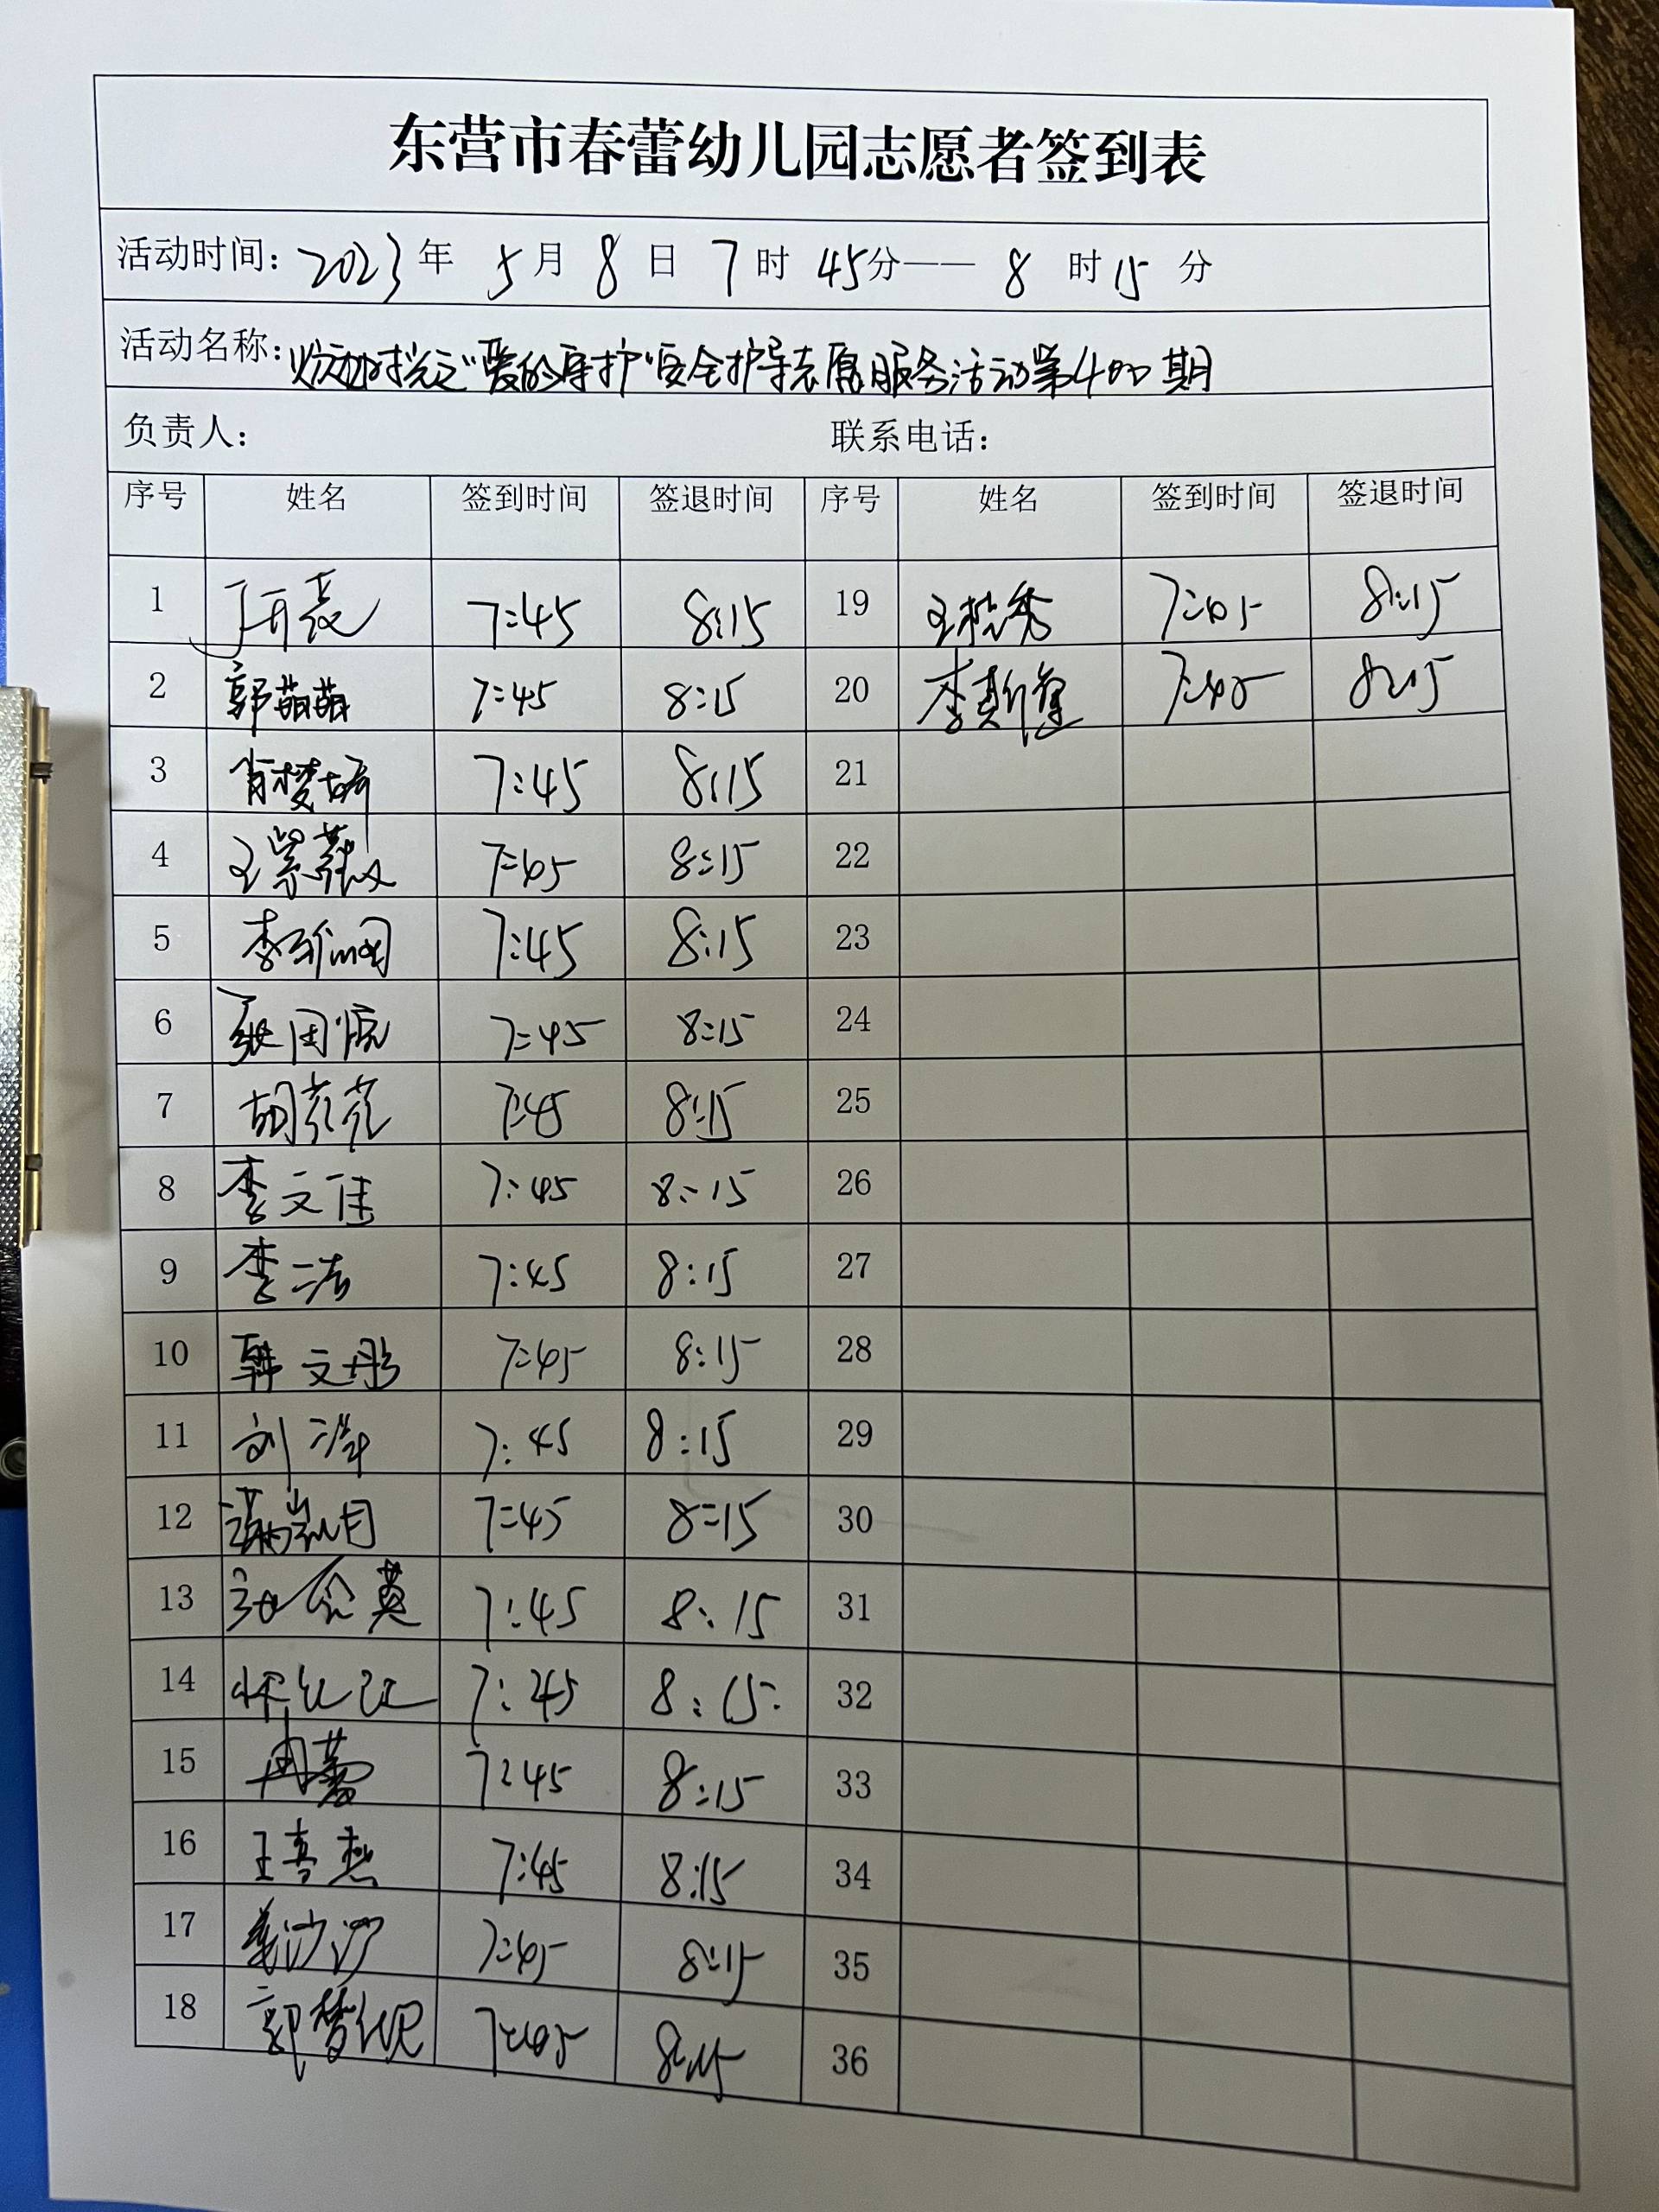 东营市春蕾幼儿园志愿者签到表
活动时间: 2023 年 5 月 8 日 7 时 45 分—— 8 时 15 分
活动名称: "爱的守护"安全护导志愿服务活动第400期
负责人: 联系电话:
序号 姓名 签到时间 签退时间 序号 姓名 签到时间 签退时间
1 7:45 8:15 19 8:15
2 郭萌萌 7:45 8:15 20 李 7:45 8:15
3 肖梦婷 7:45 8:15 21
4 王紫薇 7:45 8:15 22
5 李 7:45 8:15 23
6 张 7:45 8:15 24
7 胡 7:45 8:15 25
8 李文佳 7:45 8:15 26
9 李洁 7:45 8:15 27
10 韩文彤 7:45 8:15 28
11 刘萍 7:45 8:15 29
12 7:45 8:15 30
13 英 7:45 8:15 31
14 7:45 8:15 32
15 周蕾 7:45 8:15 33
16 王喜燕 7:45 8:15 34
17 姜沙沙 7:45 8:15 35
18 郭梦 7:45 8:15 36